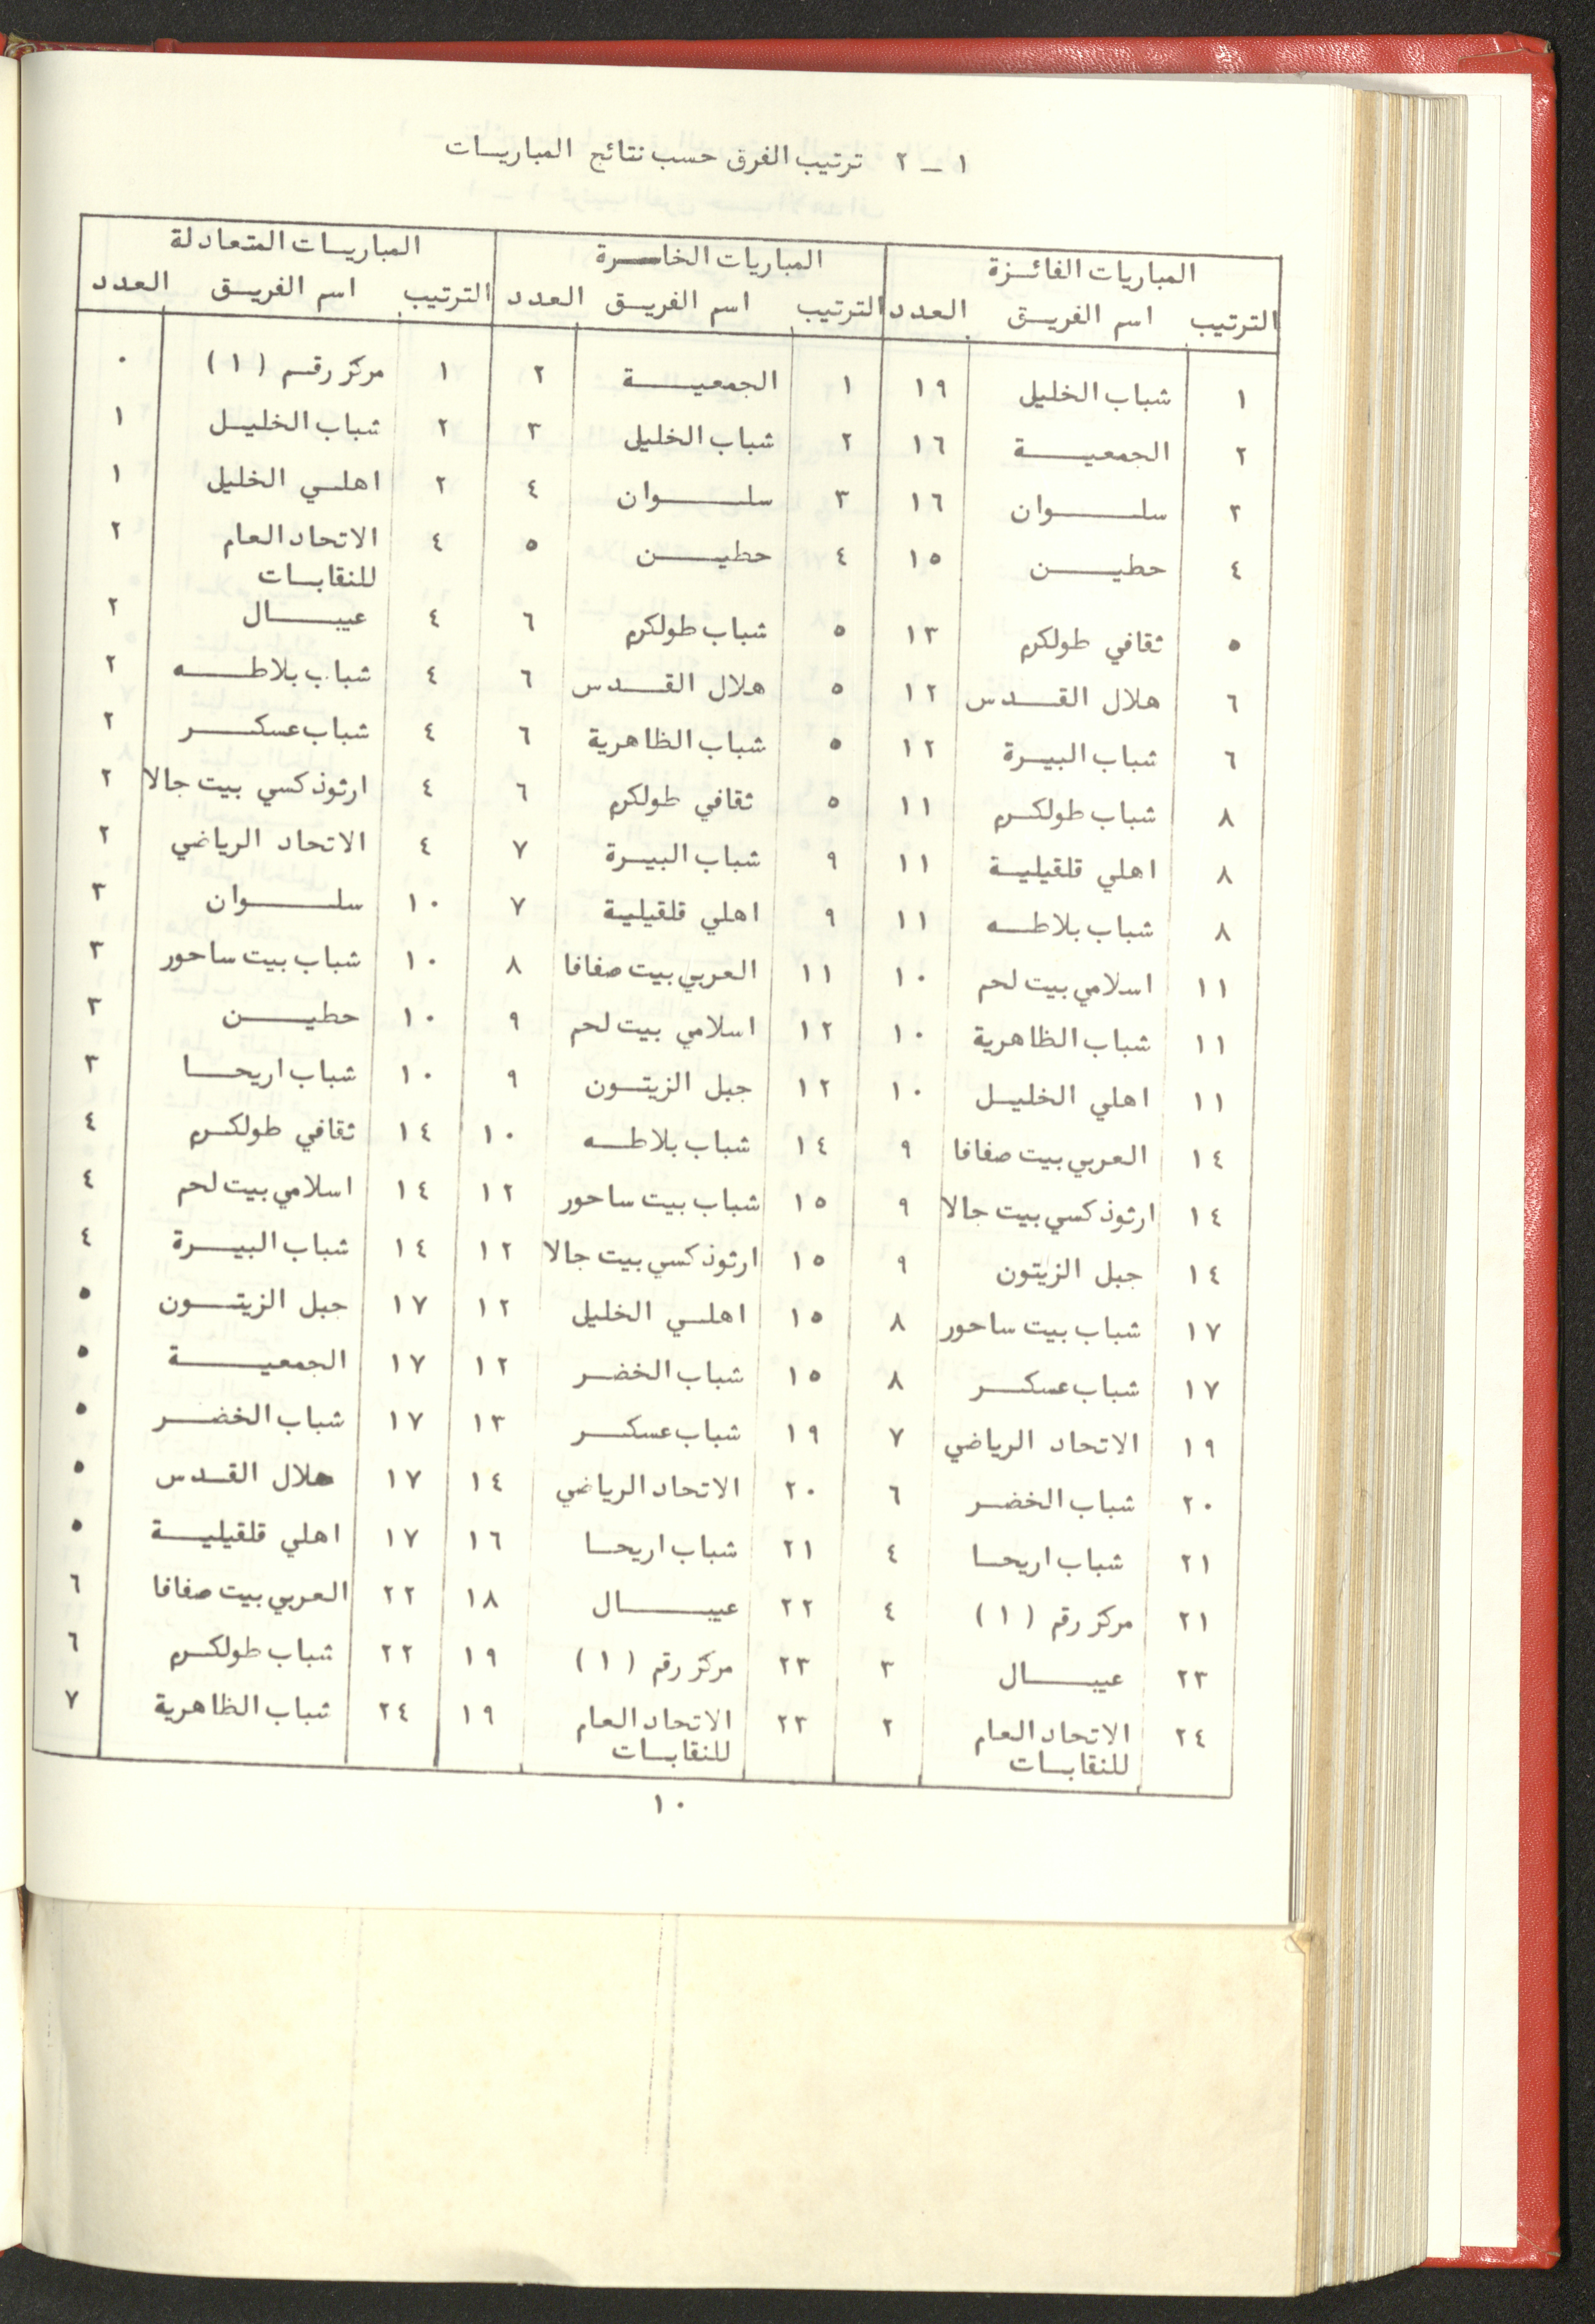 ١ - ٢ ترتيب الفرق حسب نتائج المباريات
المباريات الفائزة المباريات الخاسرة المباريات المتعادلة
الترتيب اسم الفريق العدد الترتيب اسم الفريق العدد الترتيب اسم الفريق العدد
١ شباب الخليل ١٩ ١ الجمعية ٢ ١ مركز رقم (١) ٠
٢ الجمعية ١٦ ٢ شباب الخليل ٣ ٢ شباب الخليل ١
٢ سلوان ١٦ ٣ سلوان ٤ ٢ اهلي الخليل ١
٤ حطين ١٥ ٤ حطين ٥ ٤ الاتحاد العام للنقابات ٢
٥ ثقافي طولكرم ١٣ ٥ شباب طولكرم ٦ ٤ عيبال ٢
٦ هلال القدس ١٢ ٥ هلال القدس ٦ ٤ شباب بلاطه ٢
٦ شباب البيرة ١٢ ٥ شباب الظاهرية ٦ ٤ شباب عسكر ٢
٨ شباب طولكرم ١١ ٥ ثقافي طولكرم ٦ ٤ ارثوذكسي بيت جالا ٢
٨ اهلي قلقيلية ١١ ٩ شباب البيرة ٧ ٤ الاتحاد الرياضي ٢
٨ شباب بلاطه ١١ ٩ اهلي قلقيلية ٧ ١٠ سلوان ٣
١١ اسلامي بيت لحم ١٠ ١١ العربي بيت صفافا ٨ ١٠ شباب بيت ساحور ٣
١١ شباب الظاهرية ١٠ ١٢ اسلامي بيت لحم ٩ ١٠ حطين ٣
١١ اهلي الخليل ١٠ ١٢ جبل الزيتون ٩ ١٠ شباب اريحا ٣
١٤ العربي بيت صفافا ٩ ١٤ شباب بلاطه ١٠ ١٤ ثقافي طولكرم ٤
١٤ ارثوذكسي بيت جالا ٩ ١٥ شباب بيت ساحور ١٢ ١٤ اسلامي بيت لحم ٤
١٤ جبل الزيتون ٩ ١٥ ارثوذكسي بيت جالا ١٢ ١٤ شباب البيرة ٤
١٧ شباب بيت ساحور ٨ ١٥ اهلي الخليل ١٢ ١٧ جبل الزيتون ٥
١٧ شباب عسكر ٨ ١٥ شباب الخضر ١٢ ١٧ الجمعية ٥
١٩ الاتحاد الرياضي ٧ ١٩ شباب عسكر ١٣ ١٧ شباب الخضر ٥
٢٠ شباب الخضر ٦ ٢٠ الاتحاد الرياضي ١٤ ١٧ هلال القدس ٥
٢١ شباب اريحا ٤ ٢١ شباب اريحا ١٦ ١٧ اهلي قلقيلية ٥
٢١ مركز رقم (١) ٤ ٢٢ عيبال ١٨ ٢٢ العربي بيت صفافا ٦
٢٣ عيبال ٣ ٢٣ مركز رقم (١) ١٩ ٢٢ شباب طولكرم ٦
٢٤ الاتحاد العام للنقابات ٢ ٢٣ الاتحاد العام للنقابات ١٩ ٢٤ شباب الظاهرية ٧
١٠